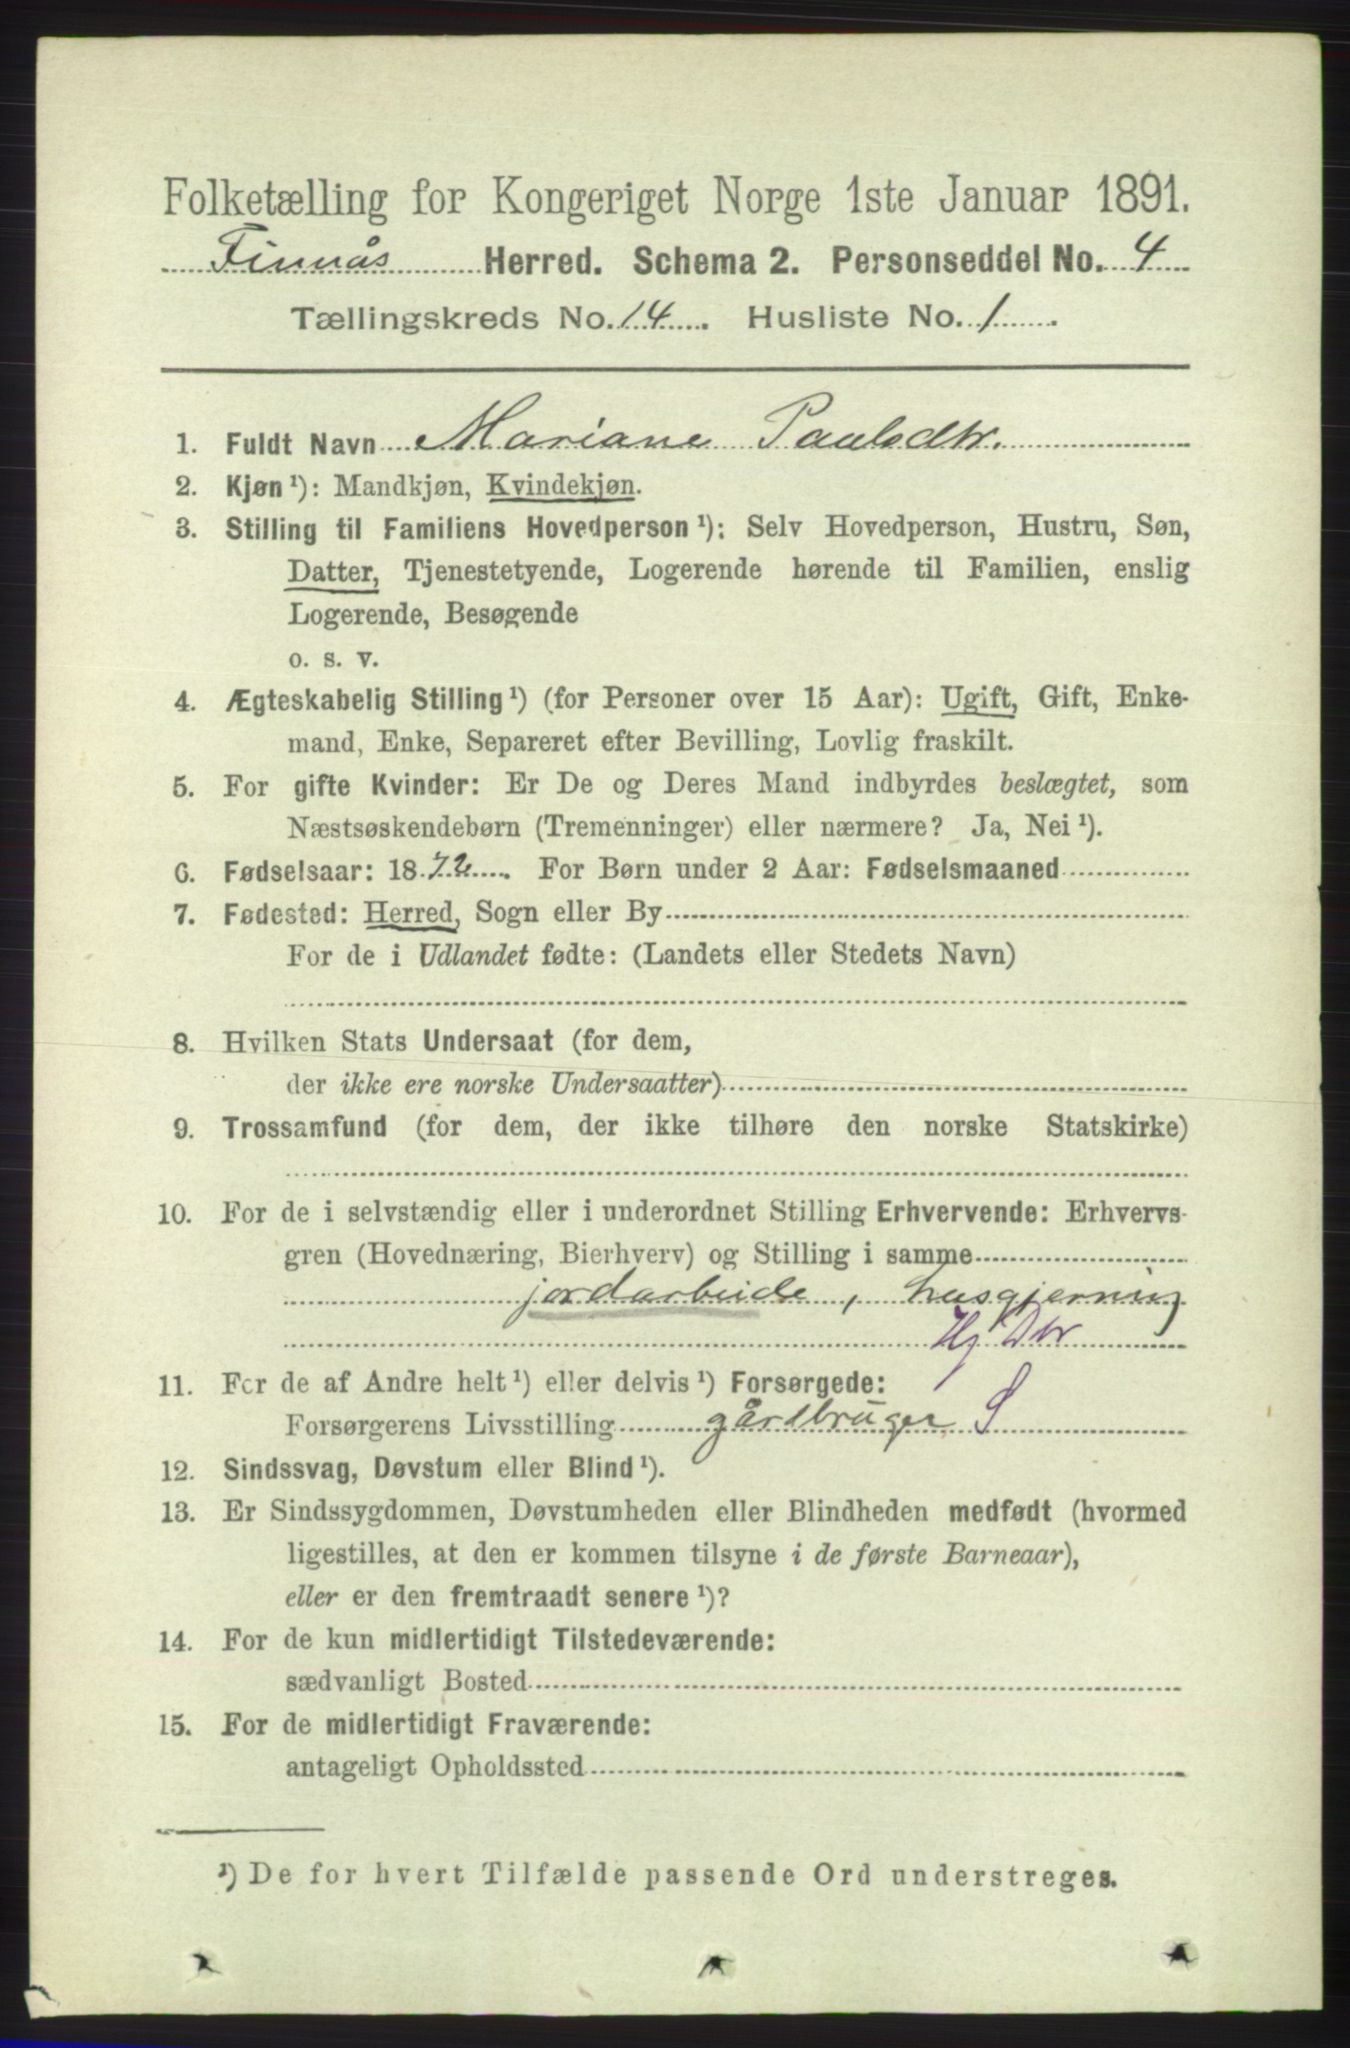 Folketælling for Kongeriget Norge 1ste Januar 1891.
Finnås Herred. Schema 2. Personseddel No. 4
Tællingskreds No. 14. Husliste No. 1.
1. Fuldt Navn Mariane Paulsdtr.
2. Kjøn ¹): Mandkjøn, Kvindekjøn.
3. Stilling til Familiens Hovedperson ¹): Selv Hovedperson, Hustru, Søn,
Datter, Tjenestetyende, Logerende hørende til Familien, enslig
Logerende, Besøgende
o. s. v.
4. Ægteskabelig Stilling ¹) (for Personer over 15 Aar): Ugift, Gift, Enke-
mand, Enke, Separeret efter Bevilling, Lovlig fraskilt.
5. For gifte Kvinder: Er De og Deres Mand indbyrdes beslægtet, som
Næstsøskendebørn (Tremenninger) eller nærmere? Ja, Nei ¹).
6. Fødselsaar: 1872. For Børn under 2 Aar: Fødselsmaaned
7. Fødested: Herred, Sogn eller By
For de i Udlandet fødte: (Landets eller Stedets Navn)
8. Hvilken Stats Undersaat (for dem,
der ikke ere norske Undersaatter)
9. Trossamfund (for dem, der ikke tilhøre den norske Statskirke)
10. For de i selvstændig eller i underordnet Stilling Erhvervende: Erhvervs-
gren (Hovednæring, Bierhverv) og Stilling i samme
jordarbeide, husgjerning
Hj Dtr
11. For de af Andre helt ¹) eller delvis ¹) Forsørgede:
Forsørgerens Livsstilling gårdbruger S
12. Sindssvag, Døvstum eller Blind ¹).
13. Er Sindssygdommen, Døvstumheden eller Blindheden medfødt (hvormed
ligestilles, at den er kommen tilsyne i de første Barneaar),
eller er den fremtraadt senere ¹)?
14. For de kun midlertidigt Tilstedeværende:
sædvanligt Bosted
15. For de midlertidigt Fraværende:
antageligt Opholdssted
¹) De for hvert Tilfælde passende Ord understreges.